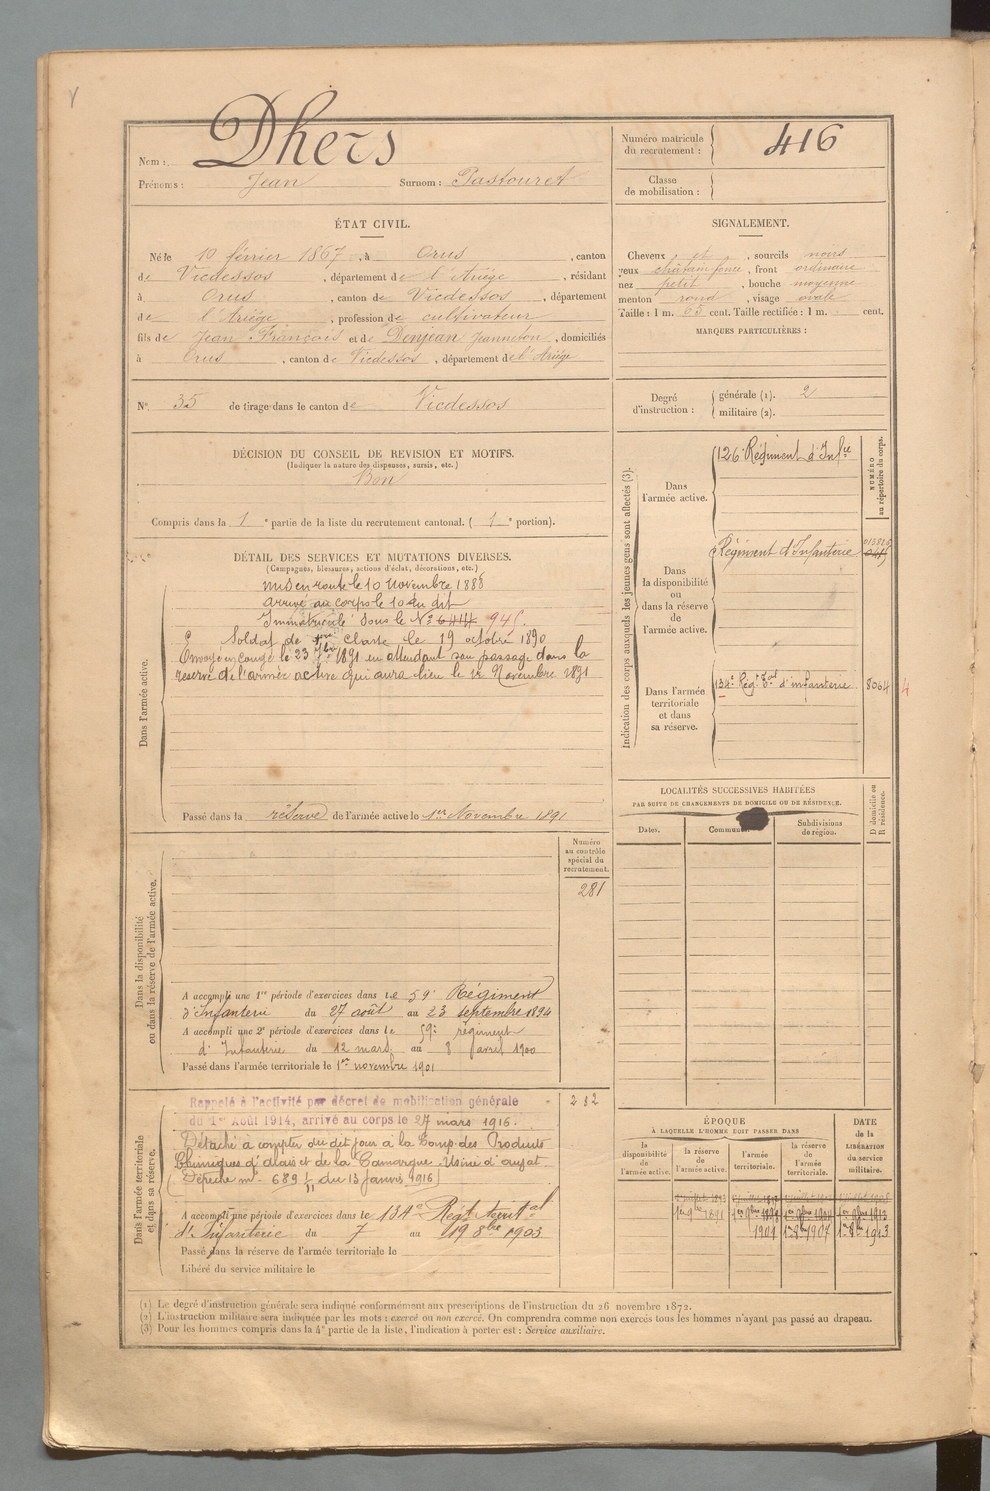 Nom : Dhers
Prénoms : Jean Surnom : Pastouret
Numéro matricule du recrutement : 416
Classe de mobilisation :
ÉTAT CIVIL.
Né le 10 février 1867, à Orus, canton
de Vicdessos, département de l'Ariège, résidant
à Orus, canton de Vicdessos, département
de l'Ariège, profession de cultivateur
fils de Jean François et de Denjean Jeanneton, domiciliés
à Orus, canton de Vicdessos, département de l'Ariège
SIGNALEMENT.
Cheveux et, sourcils noirs
yeux châtain foncé, front ordinaire
nez petit, bouche moyenne
menton rond, visage ovale
Taille : 1 m. 65 cent. Taille rectifiée : 1 m. cent.
MARQUES PARTICULIÈRES :
N° 35 de tirage dans le canton de Vicdessos
Degré d'instruction : générale (1). 2
militaire (2).
DÉCISION DU CONSEIL DE REVISION ET MOTIFS.
(Indiquer la nature des dispenses, sursis, etc.)
Bon
Compris dans la 1e partie de la liste du recrutement cantonal. ( 1e portion).
DÉTAIL DES SERVICES ET MUTATIONS DIVERSES.
(Campagnes, blessures, actions d'éclat, décorations, etc.)
Dans l'armée active.
mis en route le 10 Novembre 1888
arrivé au corps le 10 du dit
Immatriculé sous le N°
Soldat de 1ère classe le 19 octobre 1890
Envoyé en congé le 23 7bre 1891 en attendant son passage dans la
réserve de l'armée active qui aura lieu le 1er Novembre 1891
Passé dans la réserve de l'armée active le 1er Novembre 1891
Indication des corps auxquels les jeunes gens sont affectés (3).
NUMÉRO au répertoire du corps.
Dans l'armée active.
126e Régiment d'Infie
Dans la disponibilité ou dans la réserve de l'armée active.
Régiment d'Infanterie
Dans l'armée territoriale et dans sa réserve.
134e Régt Tal d'infanterie 8064 4
LOCALITÉS SUCCESSIVES HABITÉES
PAR SUITE DE CHANGEMENTS DE DOMICILE OU DE RÉSIDENCE.
Dates. Communes. Subdivisions de région. D domicile ou R résidence.
Dans la disponibilité ou dans la réserve de l'armée active.
Numéro au contrôle spécial du recrutement.
281
A accompli une 1re période d'exercices dans le 59e Régiment
d'Infanterie du 27 août au 23 septembre 1894
A accompli une 2e période d'exercices dans le 59e régiment
d'Infanterie du 12 mars au 8 avril 1900
Passé dans l'armée territoriale le 1er novembre 1901
Dans l'armée territoriale et dans sa réserve.
Rappelé à l'activité par décret de mobilisation générale
du 1er Août 1914, arrivé au corps le 27 mars 1916.
282
Détaché à compter du dit jour à la Comp. des Produits
Chimiques d'Alais et de la Camargue - Usine d'Auzat -
(Dépêche mlle 689 du 13 Janvier 1916)
A accompli une période d'exercices dans le 134e Régt territal
d'Infanterie du 7 au 19 8bre 1903
Passé dans la réserve de l'armée territoriale le
Libéré du service militaire le
ÉPOQUE
À LAQUELLE L'HOMME DOIT PASSER DANS
la disponibilité de l'armée active. la réserve de l'armée active. l'armée territoriale. la réserve de l'armée territoriale.
DATE de la LIBÉRATION du service militaire.
1er 9bre 1891
1901 1er 8bre 1907 1er 8bre 1913
(1) Le degré d'instruction générale sera indiqué conformément aux prescriptions de l'instruction du 26 novembre 1872.
(2) L'instruction militaire sera indiquée par les mots : exercé ou non exercé. On comprendra comme non exercés tous les hommes n'ayant pas passé au drapeau.
(3) Pour les hommes compris dans la 4e partie de la liste, l'indication à porter est : Service auxiliaire.